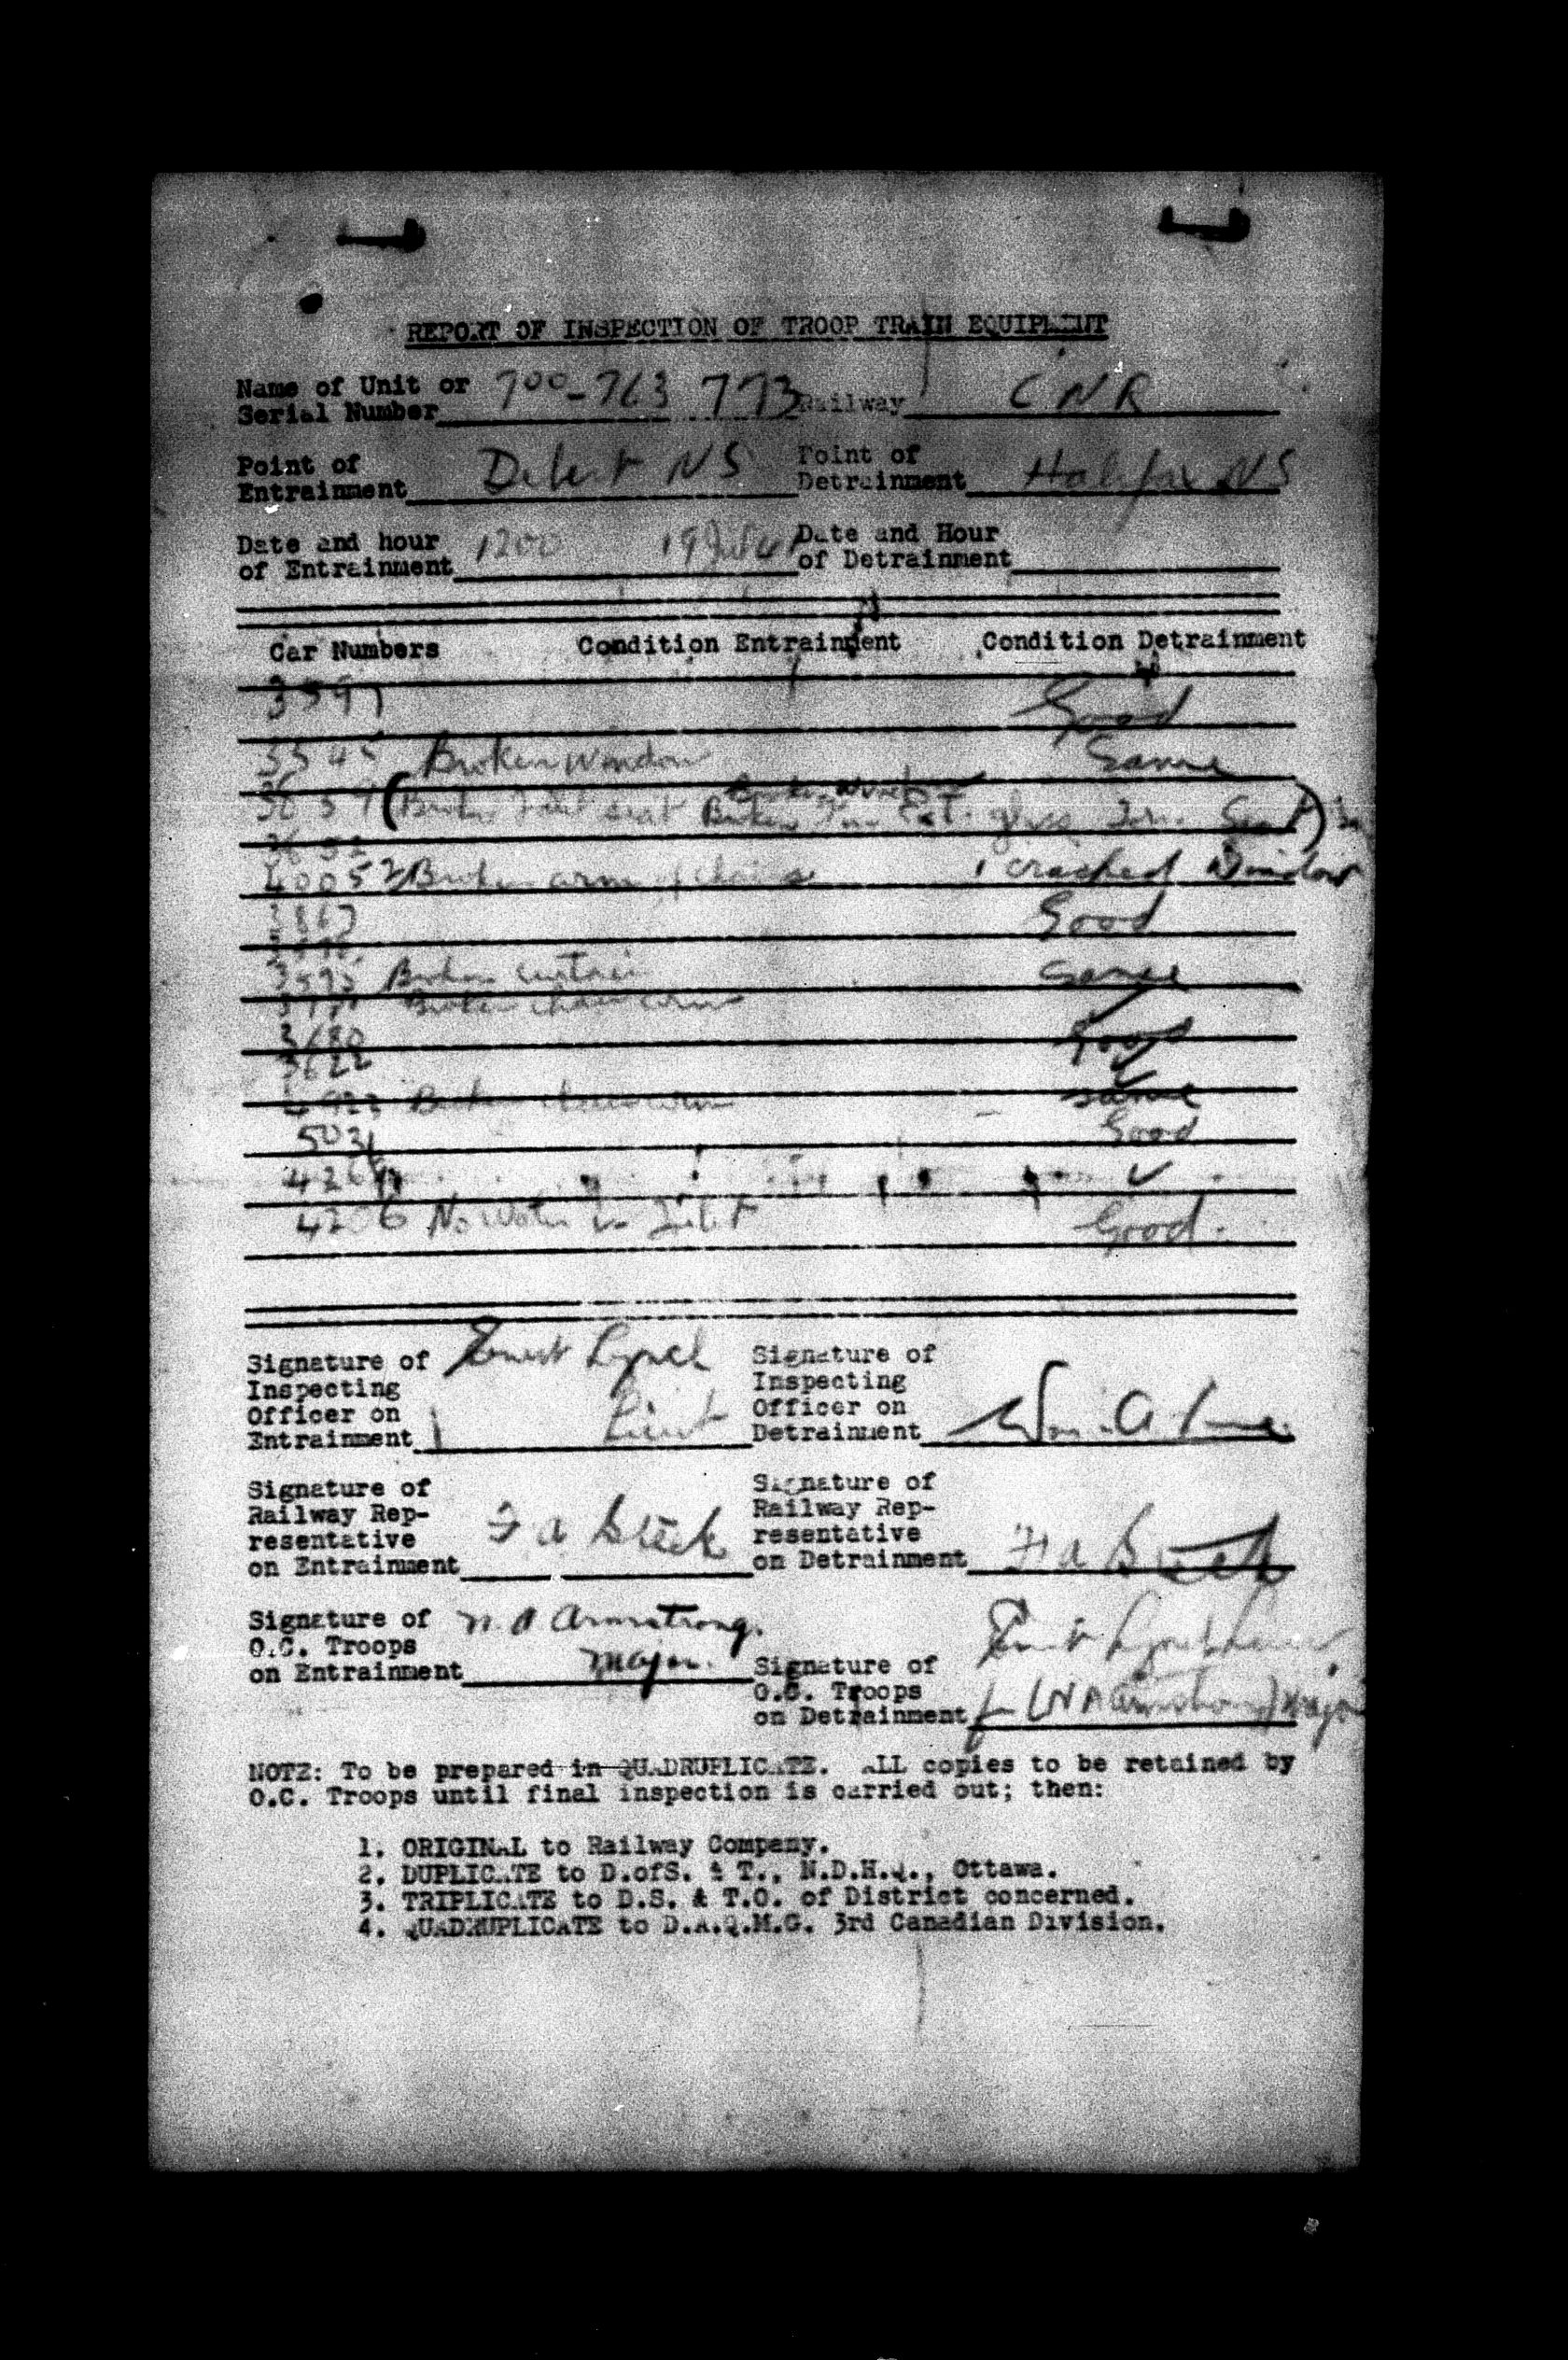 REPORT OF INSPECTION OF TROOP TRAIN EQUIPMENT
Name of Unit or
Serial Number 700-763 773 Railway CNR
Point of
Entrainment Debert NS
Point of
Detrainment Halifax NS
Date and hour
of Entrainment 1200 19 Jul 41
Date and Hour
of Detrainment
Car Numbers Condition Entrainment Condition Detrainment
3597 Good
5545 Broken Window Same
Broken seat Broken glass
40052 Broken arm of chairs 1 cracked Window
Good
3593 Broken curtain Same
Broken chair arm
3680 Good
3622
Broken chair arm same
5031 Good
4206 No Water in Toilet Good.
Signature of
Inspecting
Officer on
Entrainment Ernest Lynch
Lieut
Signature of
Inspecting
Officer on
Detrainment Wm. A.
Signature of
Railway Rep-
resentative
on Entrainment F a Steek
Signature of
Railway Rep-
resentative
on Detrainment F a
Signature of
O.C. Troops
on Entrainment N. A Armstrong.
Major.
Signature of
O.C. Troops
on Detrainment Ernest Lynch Lieut
f (N A Armstrong) Major
NOTE: To be prepared in QUADRUPLICATE. ALL copies to be retained by
O.C. Troops until final inspection is carried out; then:
1. ORIGINAL to Railway Company.
2. DUPLICATE to D.ofS. & T., N.D.H.Q., Ottawa.
3. TRIPLICATE to D.S. & T.O. of District concerned.
4. QUADRUPLICATE to D.A.Q.M.G. 3rd Canadian Division.